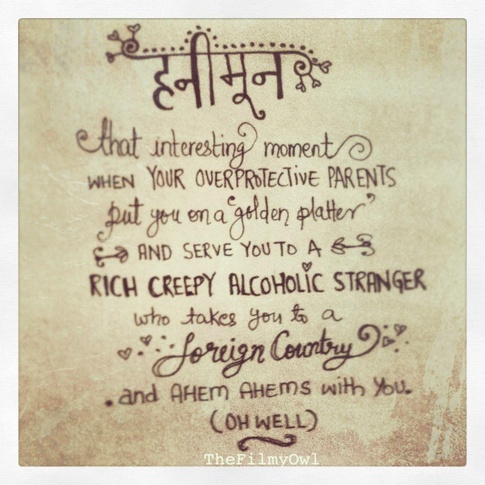 हनीमून
that interesting moment
WHEN YOUR OVERPROTECTIVE PARENTS
put you on a "golden platter"
AND SERVE YOU TO A
RICH CREEPY ALCOHOLIC STRANGER
who takes you to a
foreign Country
.and AHEM AHEMS with You.
(OH WELL)
TheFilmyOwl